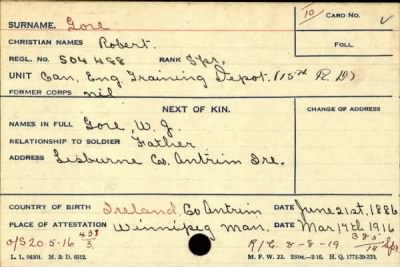 SURNAME. Gore 10 CARD NO.
CHRISTIAN NAMES Robert. FOLL.
REGL. NO. 504488 RANK Spr.
UNIT Can. Eng. Training Depot. (15th R. D)
FORMER CORPS nil
NEXT OF KIN. CHANGE OF ADDRESS
NAMES IN FULL Gore, W. J.
RELATIONSHIP TO SOLDIER Father
ADDRESS Lisburne Co Antrim Ire.
COUNTRY OF BIRTH Ireland, Co Antrim DATE June 21st, 1886
PLACE OF ATTESTATION Winnipeg Man. DATE Mar 17th 1916
O/S 20.5.16 438/3 R/C. 8-8-19 385/14 Spr
L. L. 94504. M. & D. 6512. M. F. W. 22. H. Q. 1772-39-